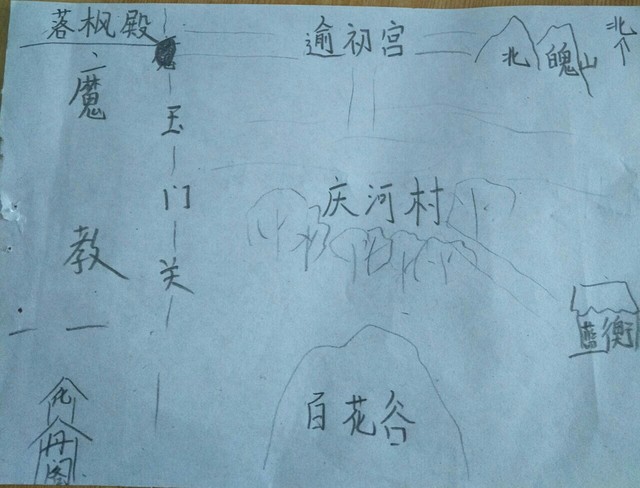 落枫殿
逾初宫
北
魄山
北
魔教
玉门关
庆河村
蓝衡
百花谷
化
丹阁